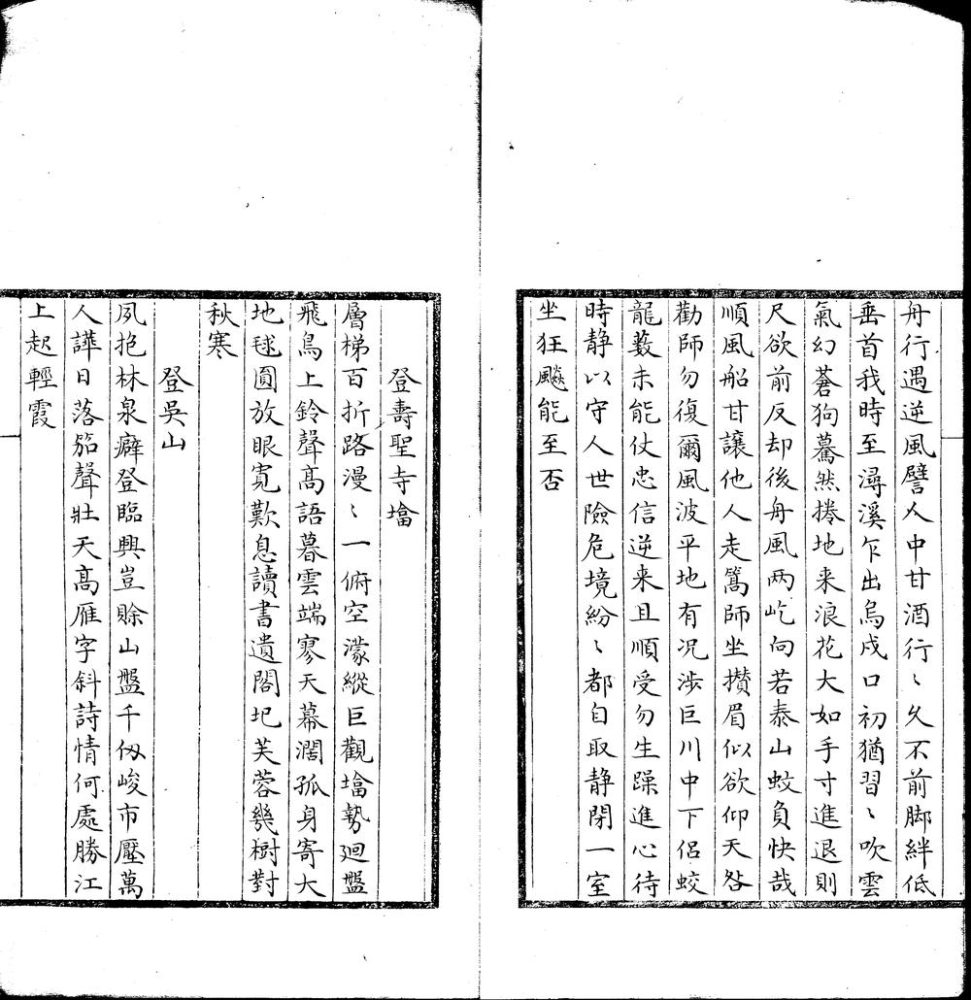 舟行遇逆風譬人中甘酒行〻久不前脚絆低
垂首我時至潯溪乍出烏戍口初猶習〻吹雲
氣幻蒼狗驀然捲地来浪花大如手寸進退則
尺欲前反却後舟風两屹向若泰山蚊負快哉
順風船甘讓他人走篙師坐攢眉似欲仰天咎
勸師勿復爾風波平地有况涉巨川中下侣蛟
龍藪未能仗忠信逆来且順受勿生躁進心待
時静以守人世險危境紛〻都自取静閉一室
坐狂飈能至否
登壽聖寺墖
層梯百折路漫〻一俯空濛縱巨觀墖勢迴盤
飛鳥上鈴聲高語暮雲端寥天幕濶孤身寄大
地毬圓放眼寛歎息讀書遺閣圯芙蓉幾樹對
秋寒
登吳山
夙抱林泉癖登臨興豈賒山盤千仭峻市壓萬
人譁日落笳聲壯天高雁字斜詩情何處勝江
上起輕霞